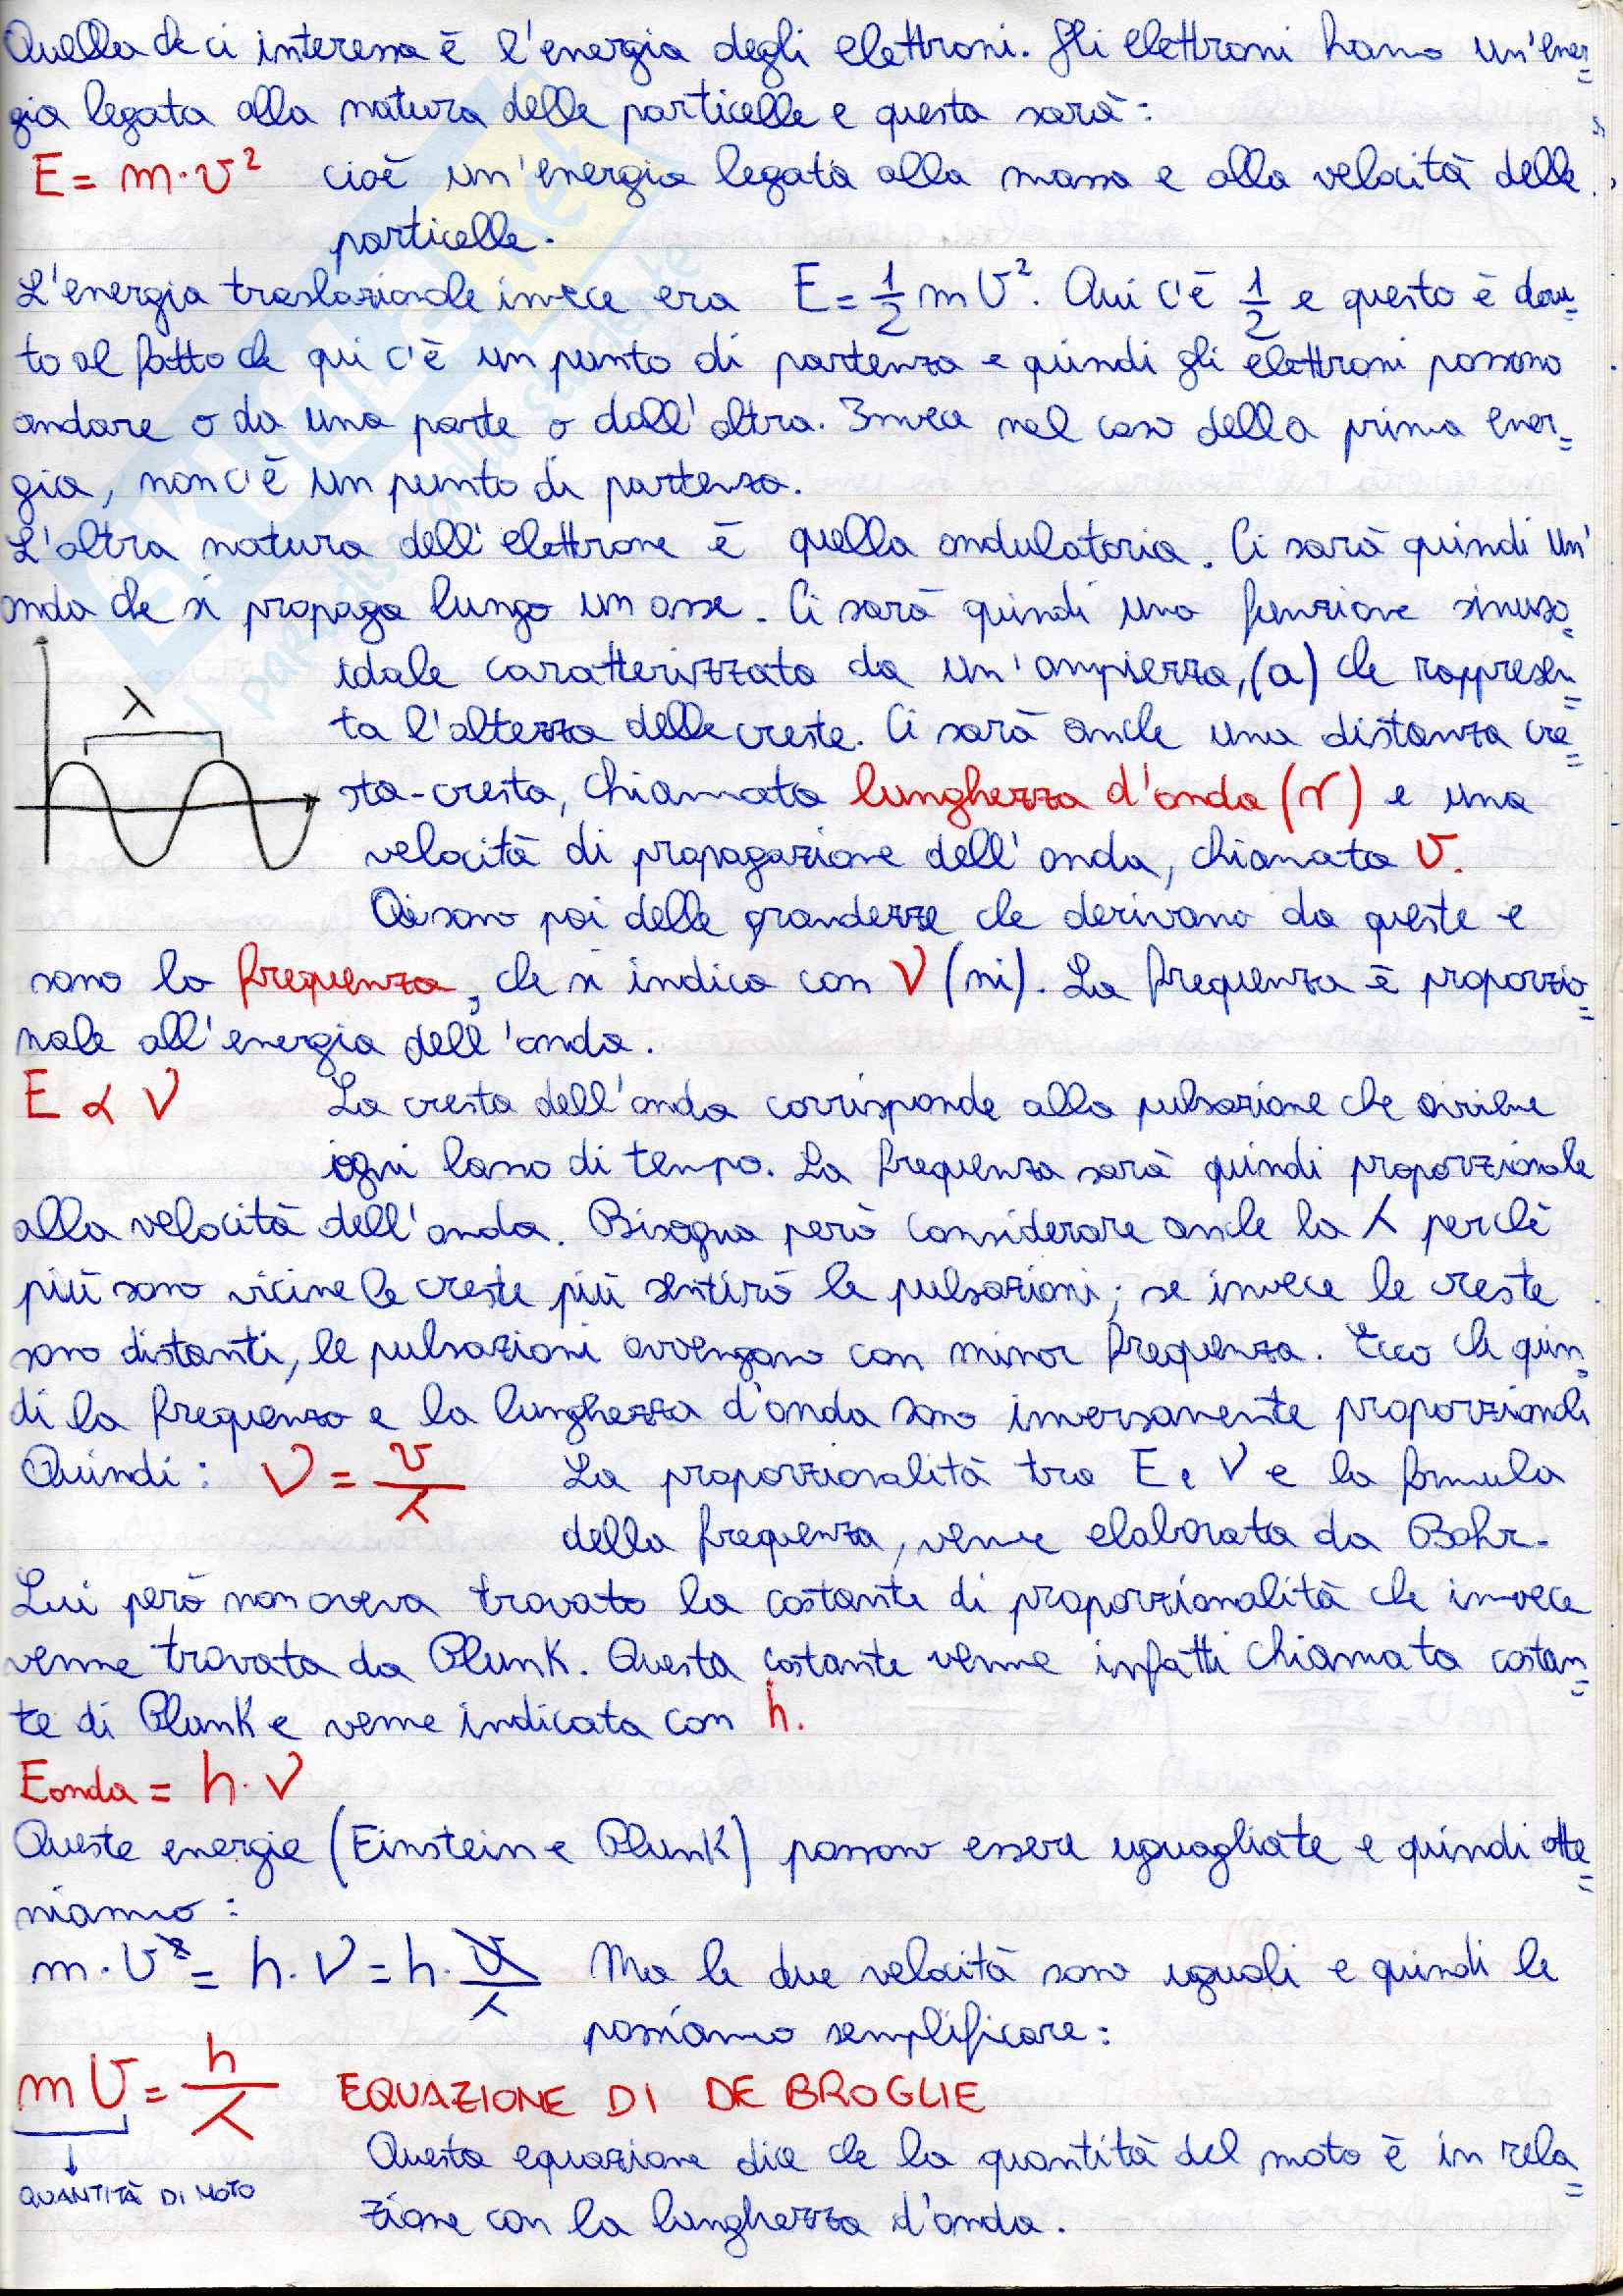 Quella che ci interessa è l'energia degli elettroni. Gli elettroni hanno un'ener=
gia legata alla natura delle particelle e questa sarà:
E = m·v² cioè un'energia legata alla massa e alla velocità delle
particelle.
L'energia traslazionale invece era E = 1/2 m v². Qui c'è 1/2 e questo è dovu=
to al fatto che qui c'è un punto di partenza e quindi gli elettroni possono
andare o da una parte o dall'altra. Invece nel caso della prima ener=
gia, non c'è un punto di partenza.
L'altra natura dell'elettrone è quella ondulatoria. Ci sarà quindi un'
onda che si propaga lungo un asse. Ci sarà quindi una funzione sinuso=
idale caratterizzata da un'ampiezza, (a) che rappresen=
ta l'altezza delle creste. Ci sarà anche una distanza cre=
λ
sta-cresta, chiamata lunghezza d'onda (r) e una
velocità di propagazione dell'onda, chiamata v.
Ci sono poi delle grandezze che derivano da queste e
sono la frequenza, che si indica con ν (ni). La frequenza è proporzio=
nale all'energia dell'onda.
E α ν La cresta dell'onda corrisponde alla pulsazione che avviene
ogni lasso di tempo. La frequenza sarà quindi proporzionale
alla velocità dell'onda. Bisogna però considerare anche la λ perchè
più sono vicine le creste più sentirò le pulsazioni; se invece le creste
sono distanti, le pulsazioni avvengono con minor frequenza. Ecco che quin=
di la frequenza e la lunghezza d'onda sono inversamente proporzionali
Quindi: ν = v/λ La proporzionalità tra E e ν e la formula
della frequenza, venne elaborata da Bohr.
Lui però non aveva trovato la costante di proporzionalità che invece
venne trovata da Plunk. Questa costante venne infatti chiamata costan=
te di Plunk e venne indicata con h.
Eonda = h·ν
Queste energie (Einstein e Plunk) possono essere uguagliate e quindi otte=
niamo:
m·v² = h·ν = h·v/λ Ma le due velocità sono uguali e quindi le
possiamo semplificare:
mv = h/λ EQUAZIONE DI DE BROGLIE
Questa equazione dice che la quantità del moto è in rela=
QUANTITÀ DI MOTO
zione con la lunghezza d'onda.